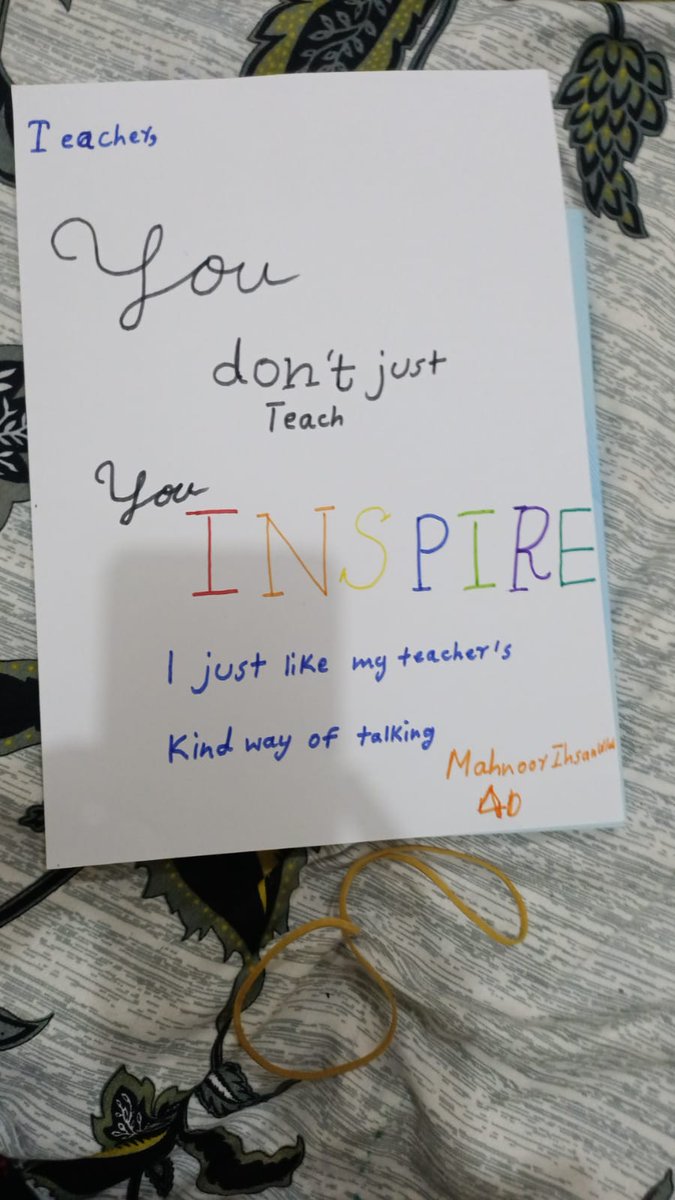 Teacher,
You
don't just
Teach
You INSPIRE
I just like my teacher's
Kind way of talking
Mahnoor Ihsan
4D